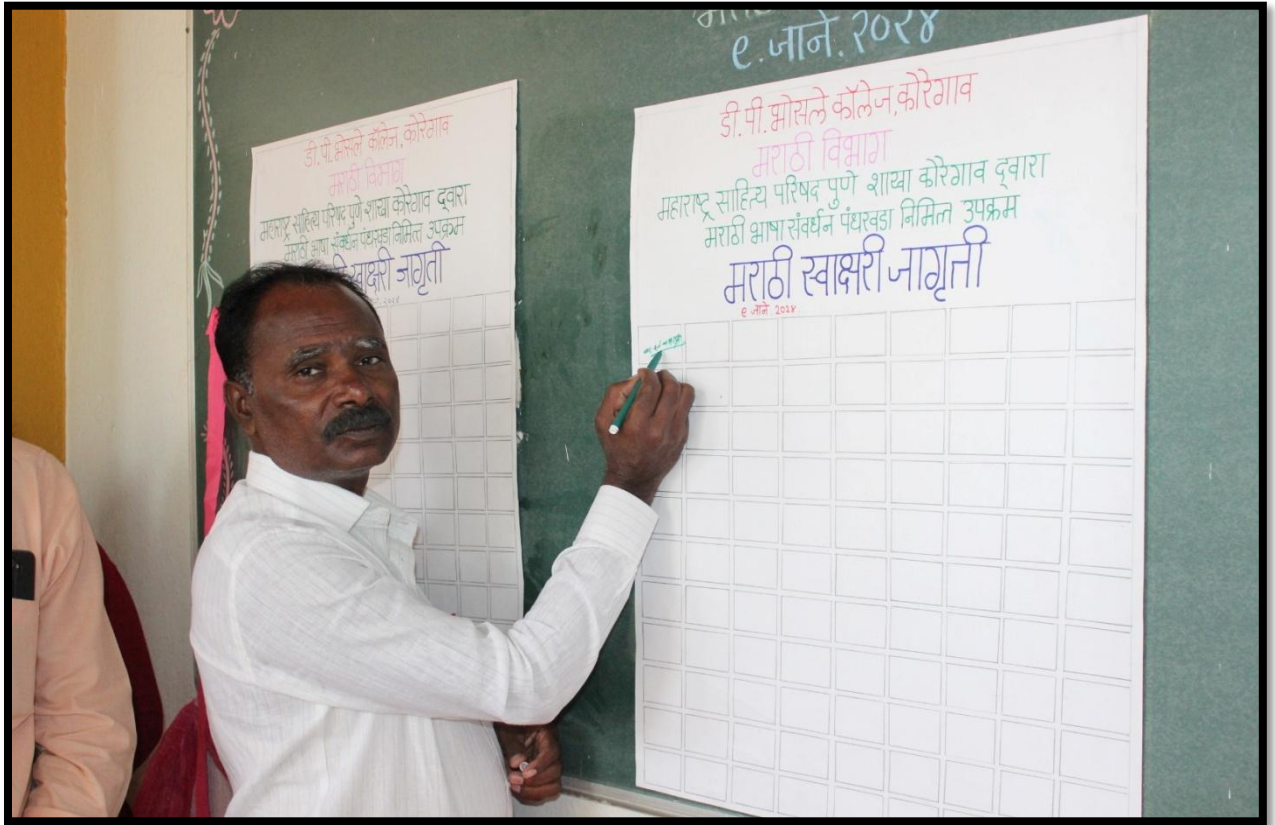 ९. जाने. २०२४
डी. पी. भोसले कॉलेज, कोरेगाव
मराठी विभाग
महाराष्ट्र साहित्य परिषद पुणे शाखा कोरेगाव द्वारा
मराठी भाषा संवर्धन पंधरवडा निमित्त उपक्रम
स्वाक्षरी जागृती
२०२४
डी. पी. भोसले कॉलेज, कोरेगाव
मराठी विभाग
महाराष्ट्र साहित्य परिषद पुणे शाखा कोरेगाव द्वारा
मराठी भाषा संवर्धन पंधरवडा निमित्त उपक्रम
मराठी स्वाक्षरी जागृती
९ जाने. २०२४